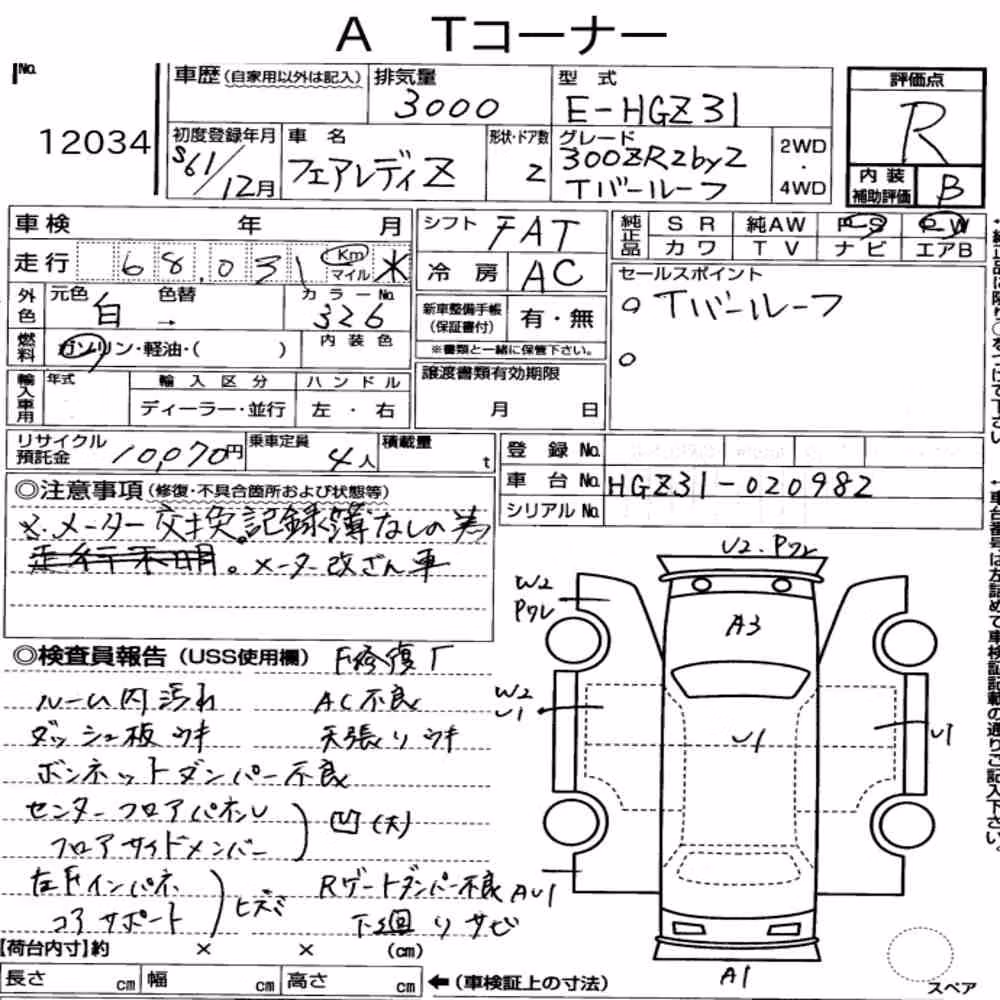 A Tコーナー
No.
12034
車歴(自家用以外は記入)
排気量
3000
型式
E-HGZ31
評価点
R
初度登録年月
S61/12月
車名
フェアレディZ
形状・ドア数
2
グレード
300ZR2by2
Tバールーフ
2WD
・
4WD
内装
補助評価
B
車検 年 月
シフト
FAT
純正品
SR 純AW PS PW
カワ TV ナビ エアB
走行
68,031
Km
マイル
※
冷房
AC
セールスポイント
○ Tバールーフ
○
外色
元色
白
色替
→
カラーNo.
326
新車整備手帳
(保証書付)
有・無
※書類と一緒に保管下さい。
燃料
ガソリン・軽油・( )
内装色
輸入車用
年式
輸入区分
ディーラー・並行
ハンドル
左・右
譲渡書類有効期限
月 日
リサイクル
預託金
10,070円
乗車定員
4人
積載量
t
登録No.
車台No.
HGZ31-020982
シリアルNo.
◎注意事項(修復・不具合箇所および状態等)
※.メーター交換記録簿なしの為
走行不明。メーター改ざん車
◎検査員報告(USS使用欄) F修復γ
ルーム内汚れ AC不良
ダッシュ板ウキ 天張りウキ
ボンネットダンパー不良
センターフロアパネル
フロアサイドメンバー
凹(大)
左Fインパネ
コアサポート
ヒズミ
Rゲートダンパー不良
下廻りサビ
U2・Pワレ
W2
Pワレ
A3
W2
U1
U1
U1
AU1
A1
【荷台内寸】約 × × (cm)
長さ cm 幅 cm 高さ cm
←(車検証上の寸法)
スペア
↑車台番号は左詰めで車検証記載の通りご記入下さい。